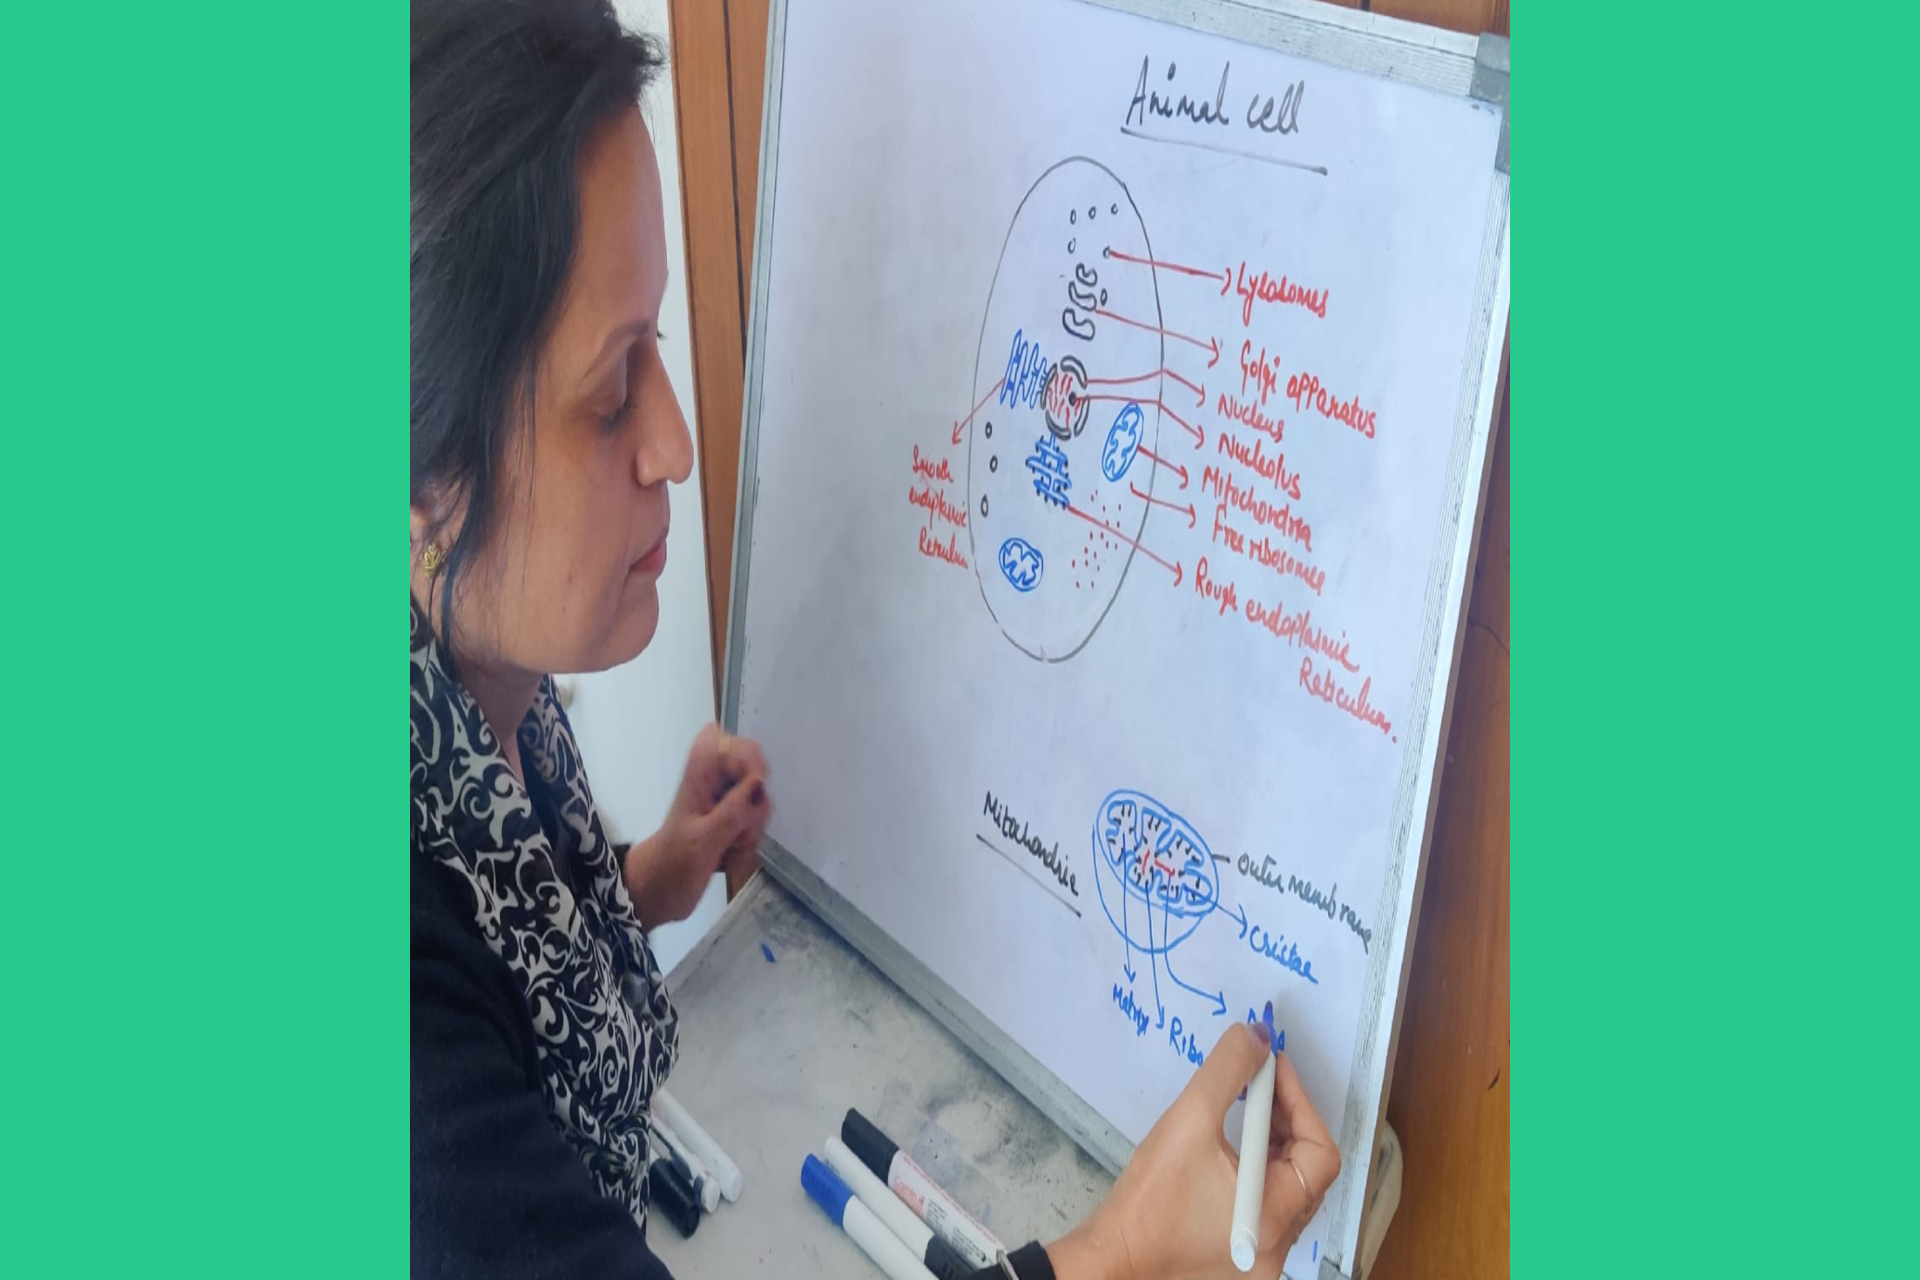 Animal cell
Lysosomes
Golgi apparatus
Nucleus
Nucleolus
Mitochondria
Free ribosomes
Rough endoplasmic
Reticulum.
Smooth
endoplasmic
Reticulum
Mitochondria
outer membrane
cristae
Matrix
Ribo